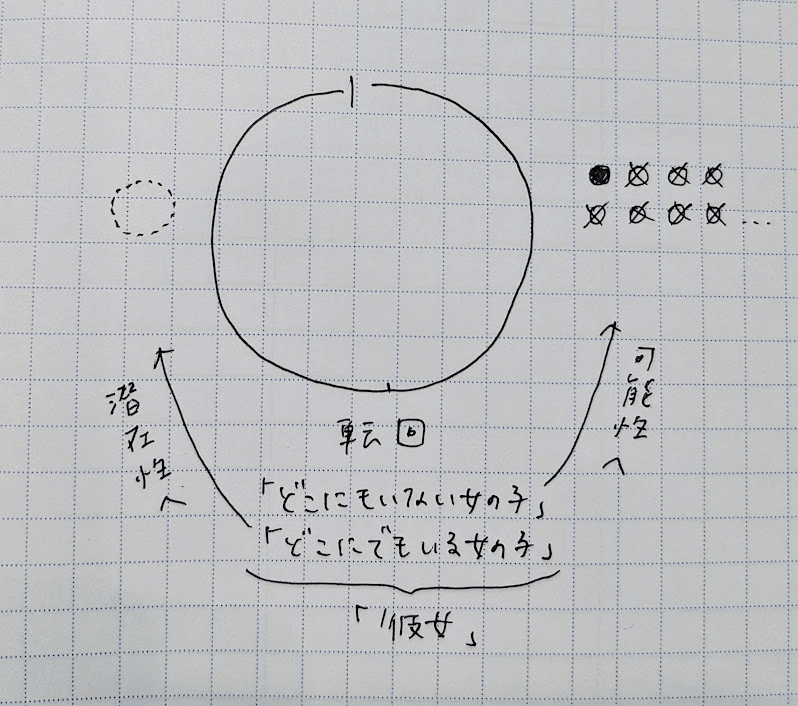 可能性へ
潜在性へ
転回
「どこにもいない女の子」
「どこにでもいる女の子」
「彼女」